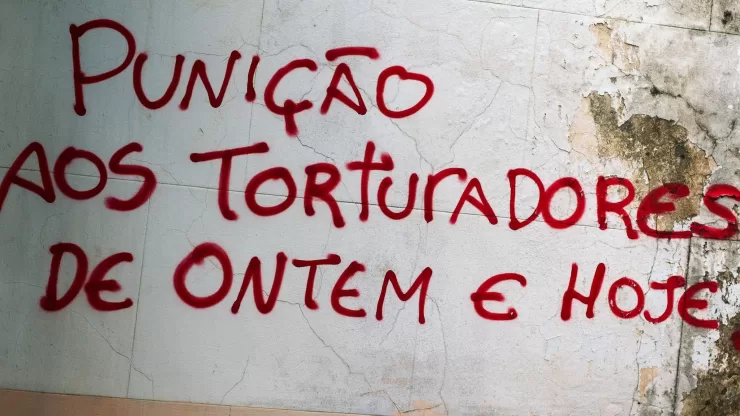 PUNIÇÃO
AOS TORTURADORES
DE ONTEM E HOJE.